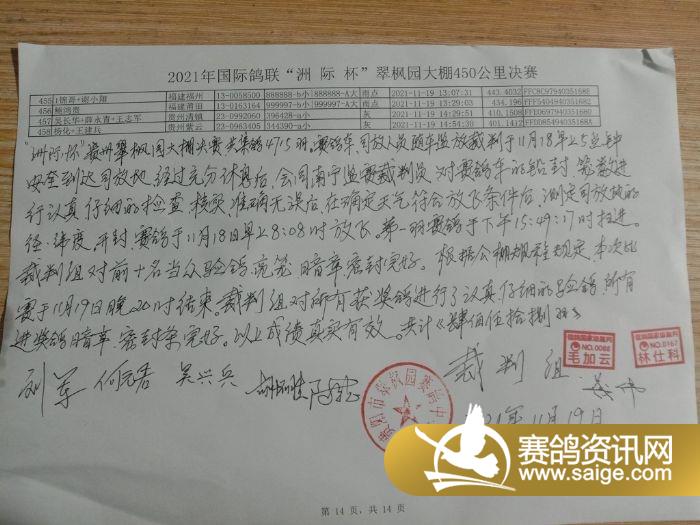 2021年国际鸽联“洲 际 杯”翠枫园大棚450公里决赛
455 1锦哥+谢小翔 福建福州 13-0058500 888888-b小 999997-A大 雨点 2021-11-19 13:07:31 443.4032 FFC8C97940351688
456 杨鸿贵 福建莆田 13-0163164 999997-b小 999997-A大 雨点 2021-11-19 13:29:03 434.196
457 吴长华+薛永青+王志军 贵州清镇 23-0992060 396428-a小 灰 2021-11-19 14:29:51 410.1508
458 杨化+王建兵 贵州紫云 23-0963405 344390-a小 灰 2021-11-19 14:51:30 401.9112
“洲际·杯”贵州翠枫园大棚决赛共集鸽4715羽。赛鸽车、司放人员随车监放裁判于11月18早上5点钟
安全到达司放地，经过充分休息后，会同南宁监赛裁判员对赛鸽车的铅封、笼数进
行认真仔细的检查、核实，准确无误后，在确定天气符合放飞条件后，测定司放地的
经·纬度，开封赛鸽于11月18日早上8:08时放飞，第一羽赛鸽于下午15:49:17时报进。
裁判组对前十名当众验鸽、流笼、暗章、密封完好。根据公棚规程规定，本次比
赛于11月19日晚20时结束。裁判组对所有获奖鸽进行了认真仔细的验鸽，所有
进奖鸽暗章、密封条完好。以上成绩真实有效。共计《肆佰伍拾捌》羽
裁判组
NO.0088
毛加云
NO.0167
林仕科
吴兴兵
2021年11月19日
第 14 页，共 14 页
赛鸽资讯网
www.saige.com